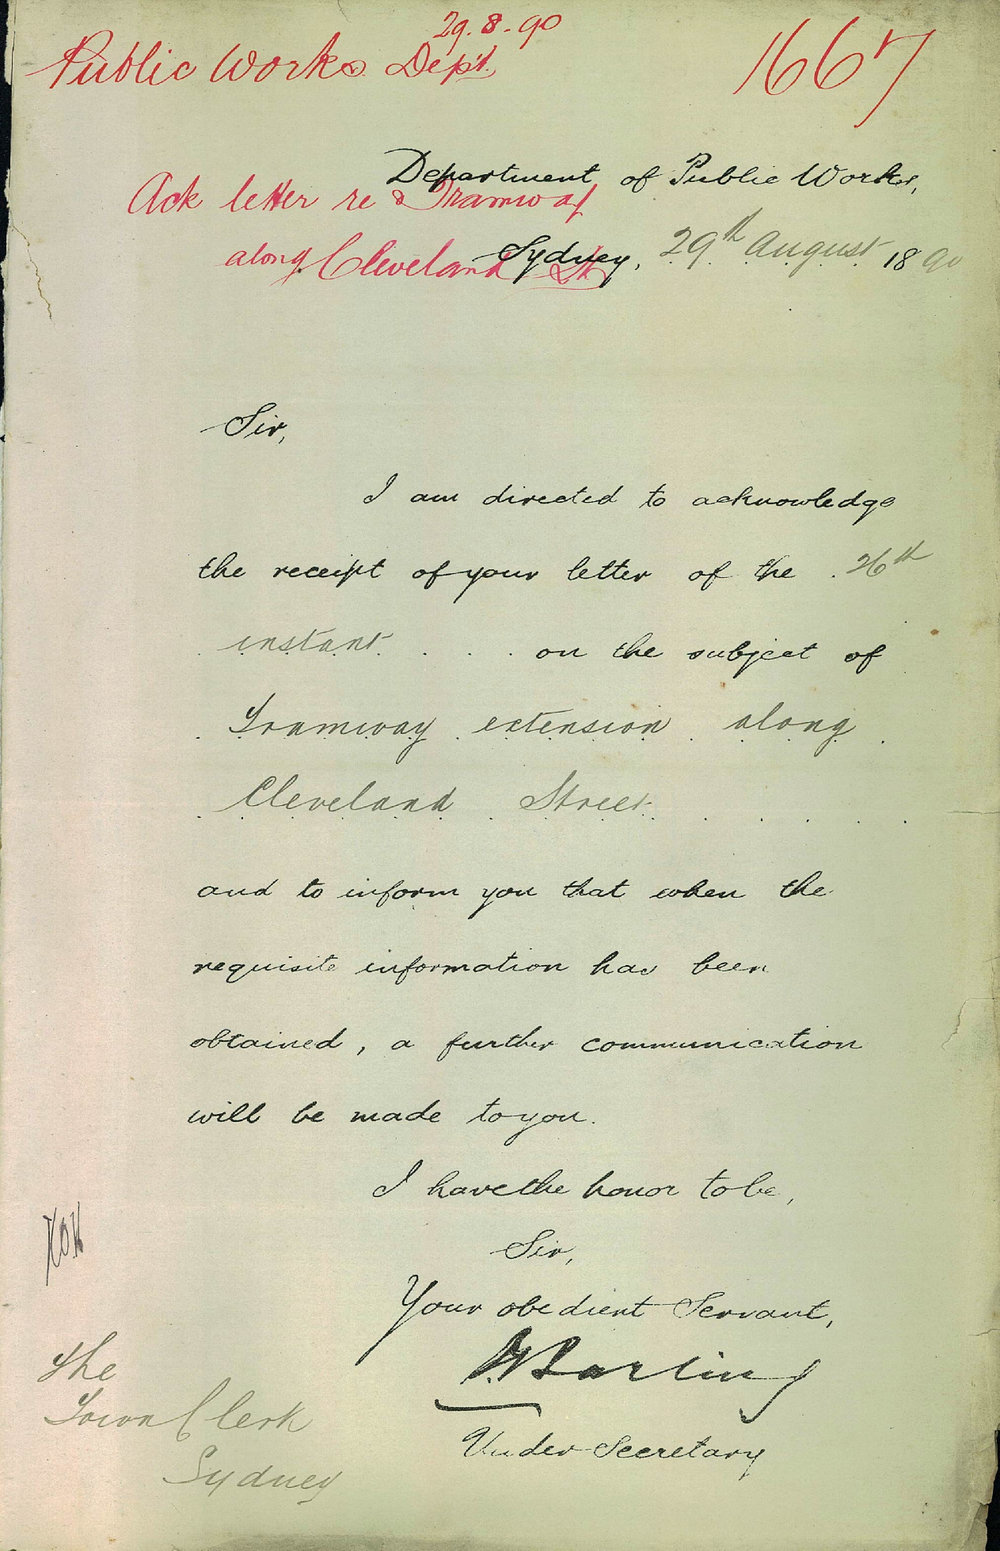 29.8.90
Public Works Dept.
1667
Department of Public Works,
Ack letter re Tramway
along Cleveland St
Sydney, 29th August 1890
Sir,
I am directed to acknowledge
the receipt of your letter of the 26th
instant on the subject of
Tramway extension along
Cleveland Street
and to inform you that when the
requisite information has been
obtained, a further communication
will be made to you.
I have the honor to be,
Sir,
Your obedient Servant,
Barling
Under Secretary
The
Town Clerk
Sydney